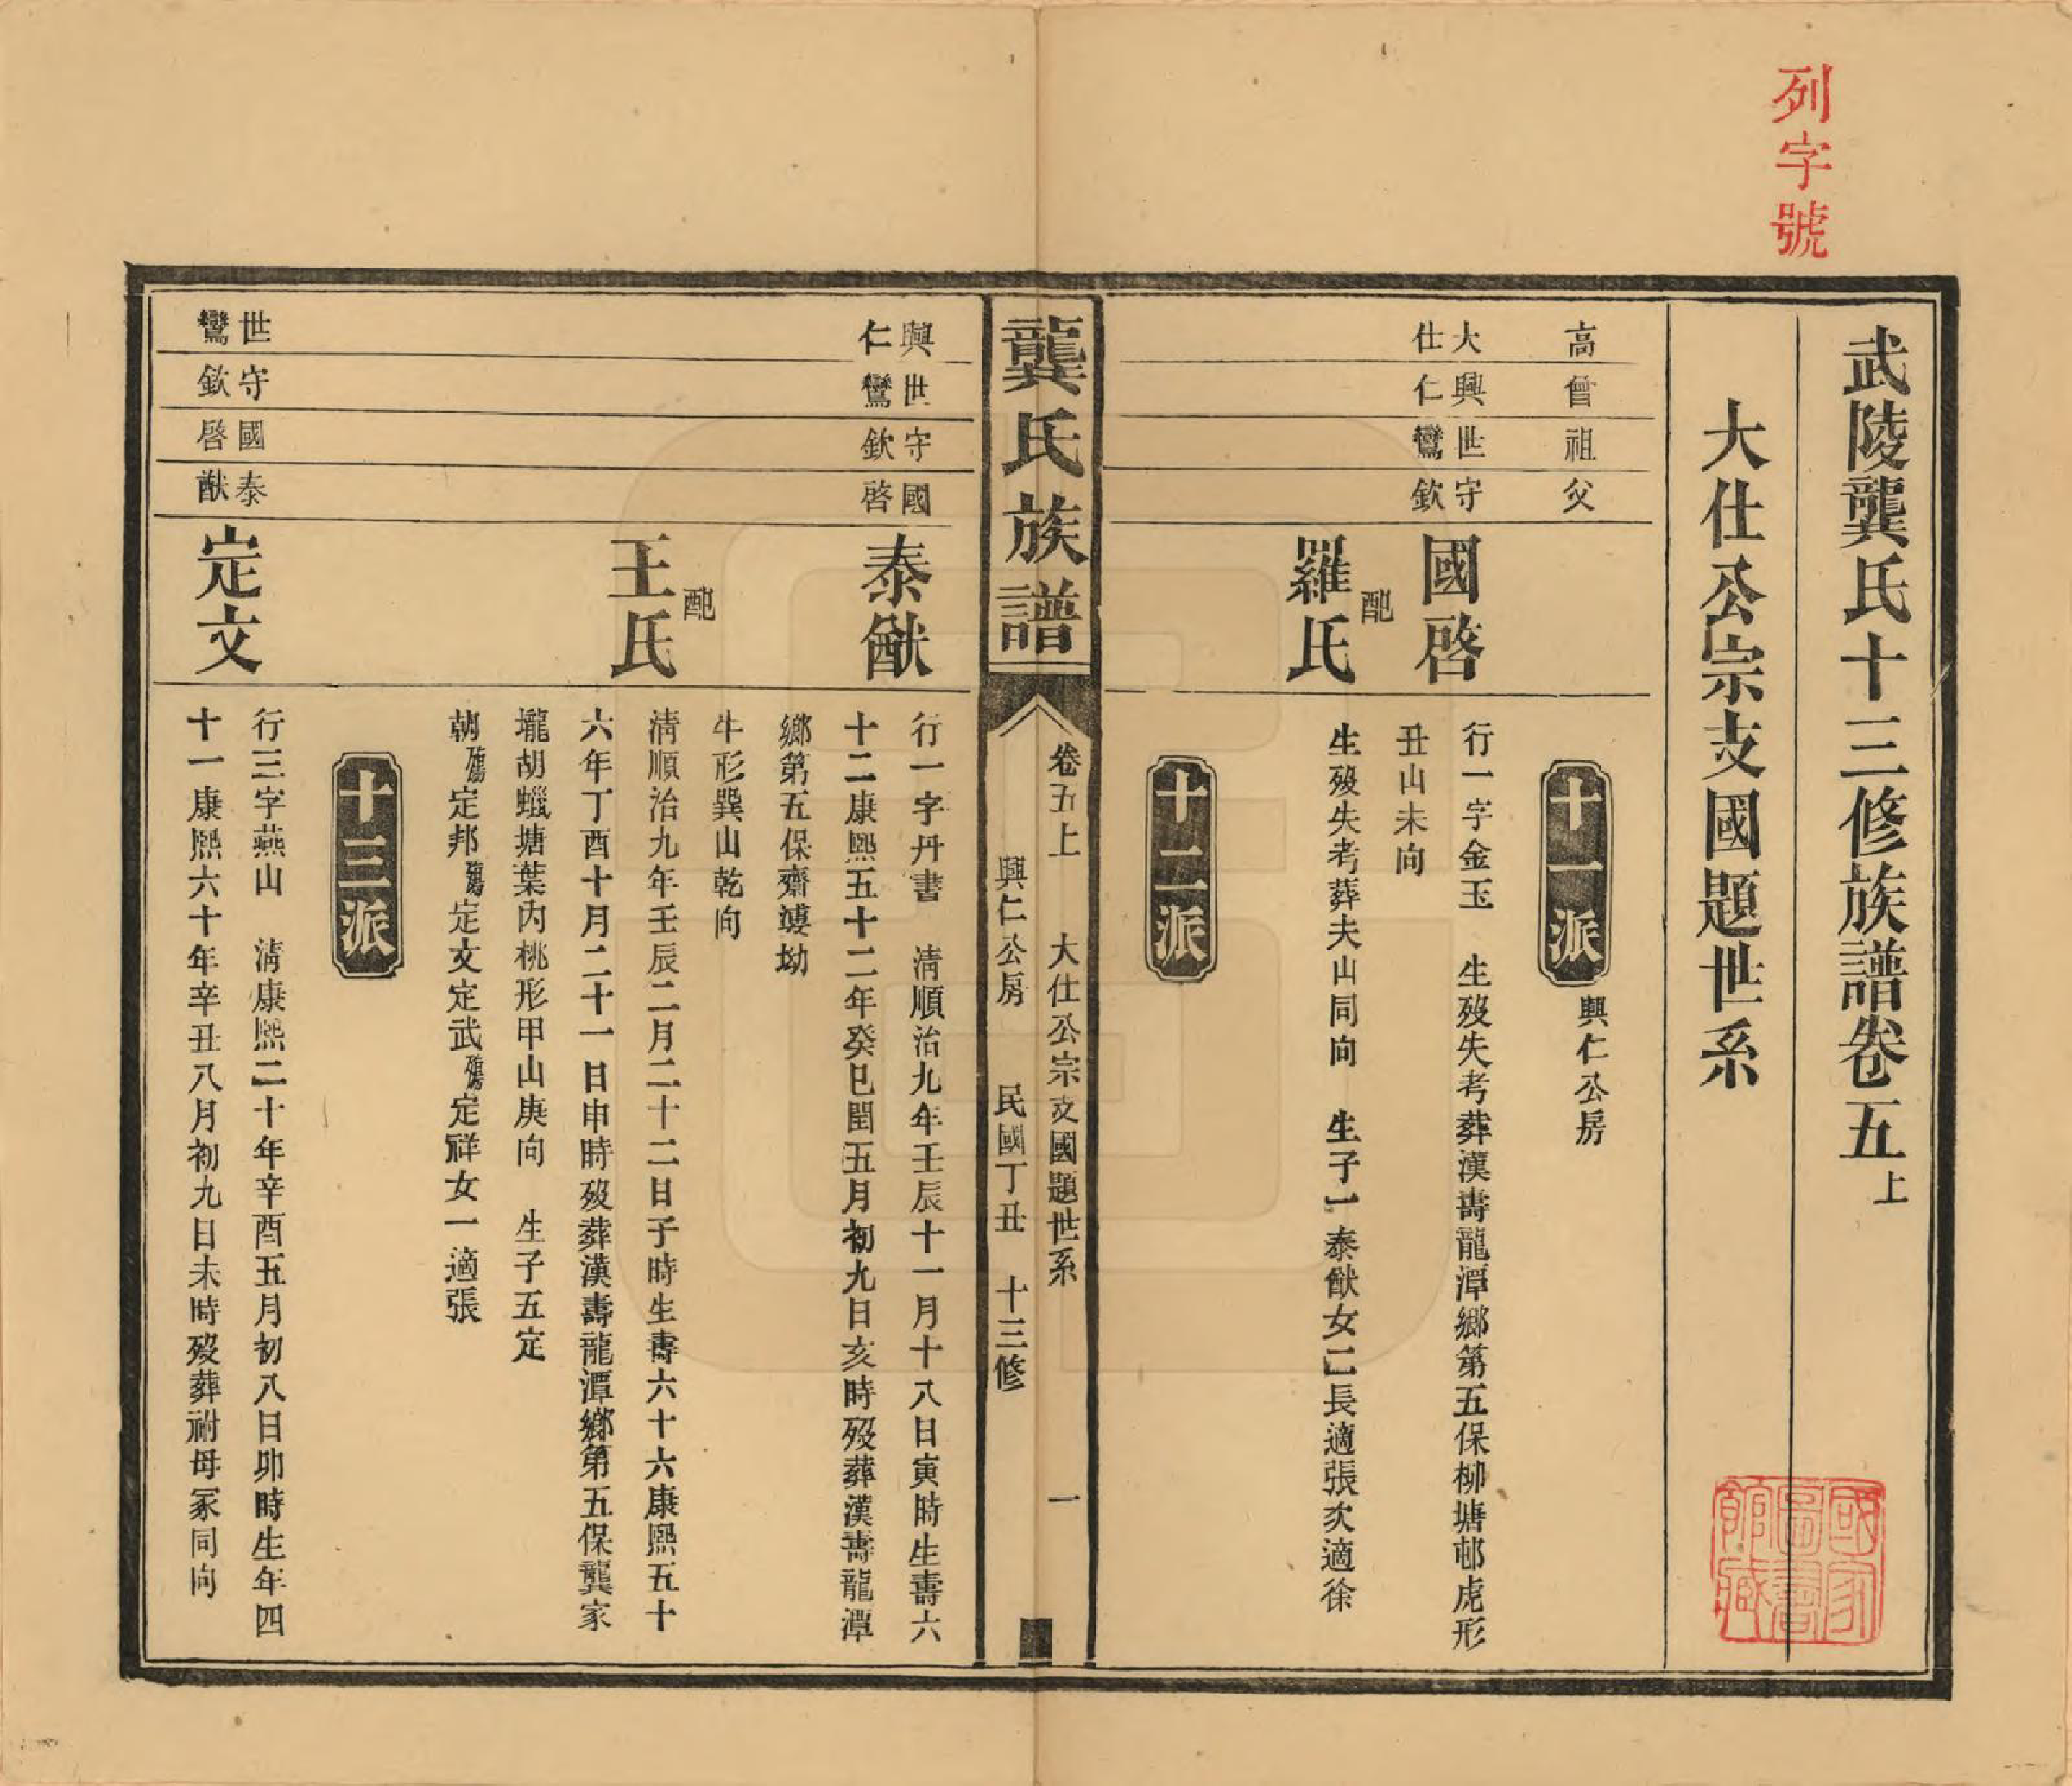 列字號
武陵龔氏十三修族譜卷五上
大仕公宗支國題世系
高 曾 祖 父
十一派 興仁公房
大仕 興仁 世鸞 守欽
國啓
行一字金玉 生歿失考葬漢壽龍潭鄉第五保柳塘邨虎形
丑山未向
配羅氏
生歿失考葬夫山同向 生子一泰猷女二長適張次適徐
十二派
龔氏族譜
卷五上 大仕公宗支國題世系 一
興仁公房 民國丁丑 十三修
興仁 世鸞 守欽 國啓
泰猷
行一字丹書 清順治九年壬辰十一月十八日寅時生壽六
十二康熙五十二年癸巳閏五月初九日亥時歿葬漢壽龍潭
鄉第五保齋婆坳
牛形巽山乾向
配王氏
清順治九年壬辰二月二十二日子時生壽六十六康熙五十
六年丁酉十月二十一日申時歿葬漢壽龍潭鄉第五保龔家
壠胡蠟塘葉內桃形甲山庚向 生子五定
朝殤定邦殤定文定武殤定祥女一適張
十三派
世鸞 守欽 國啓 泰猷
定文
行三字燕山 清康熙二十年辛酉五月初八日卯時生年四
十一康熙六十年辛丑八月初九日未時歿葬祔母冢同向
國家圖書館藏